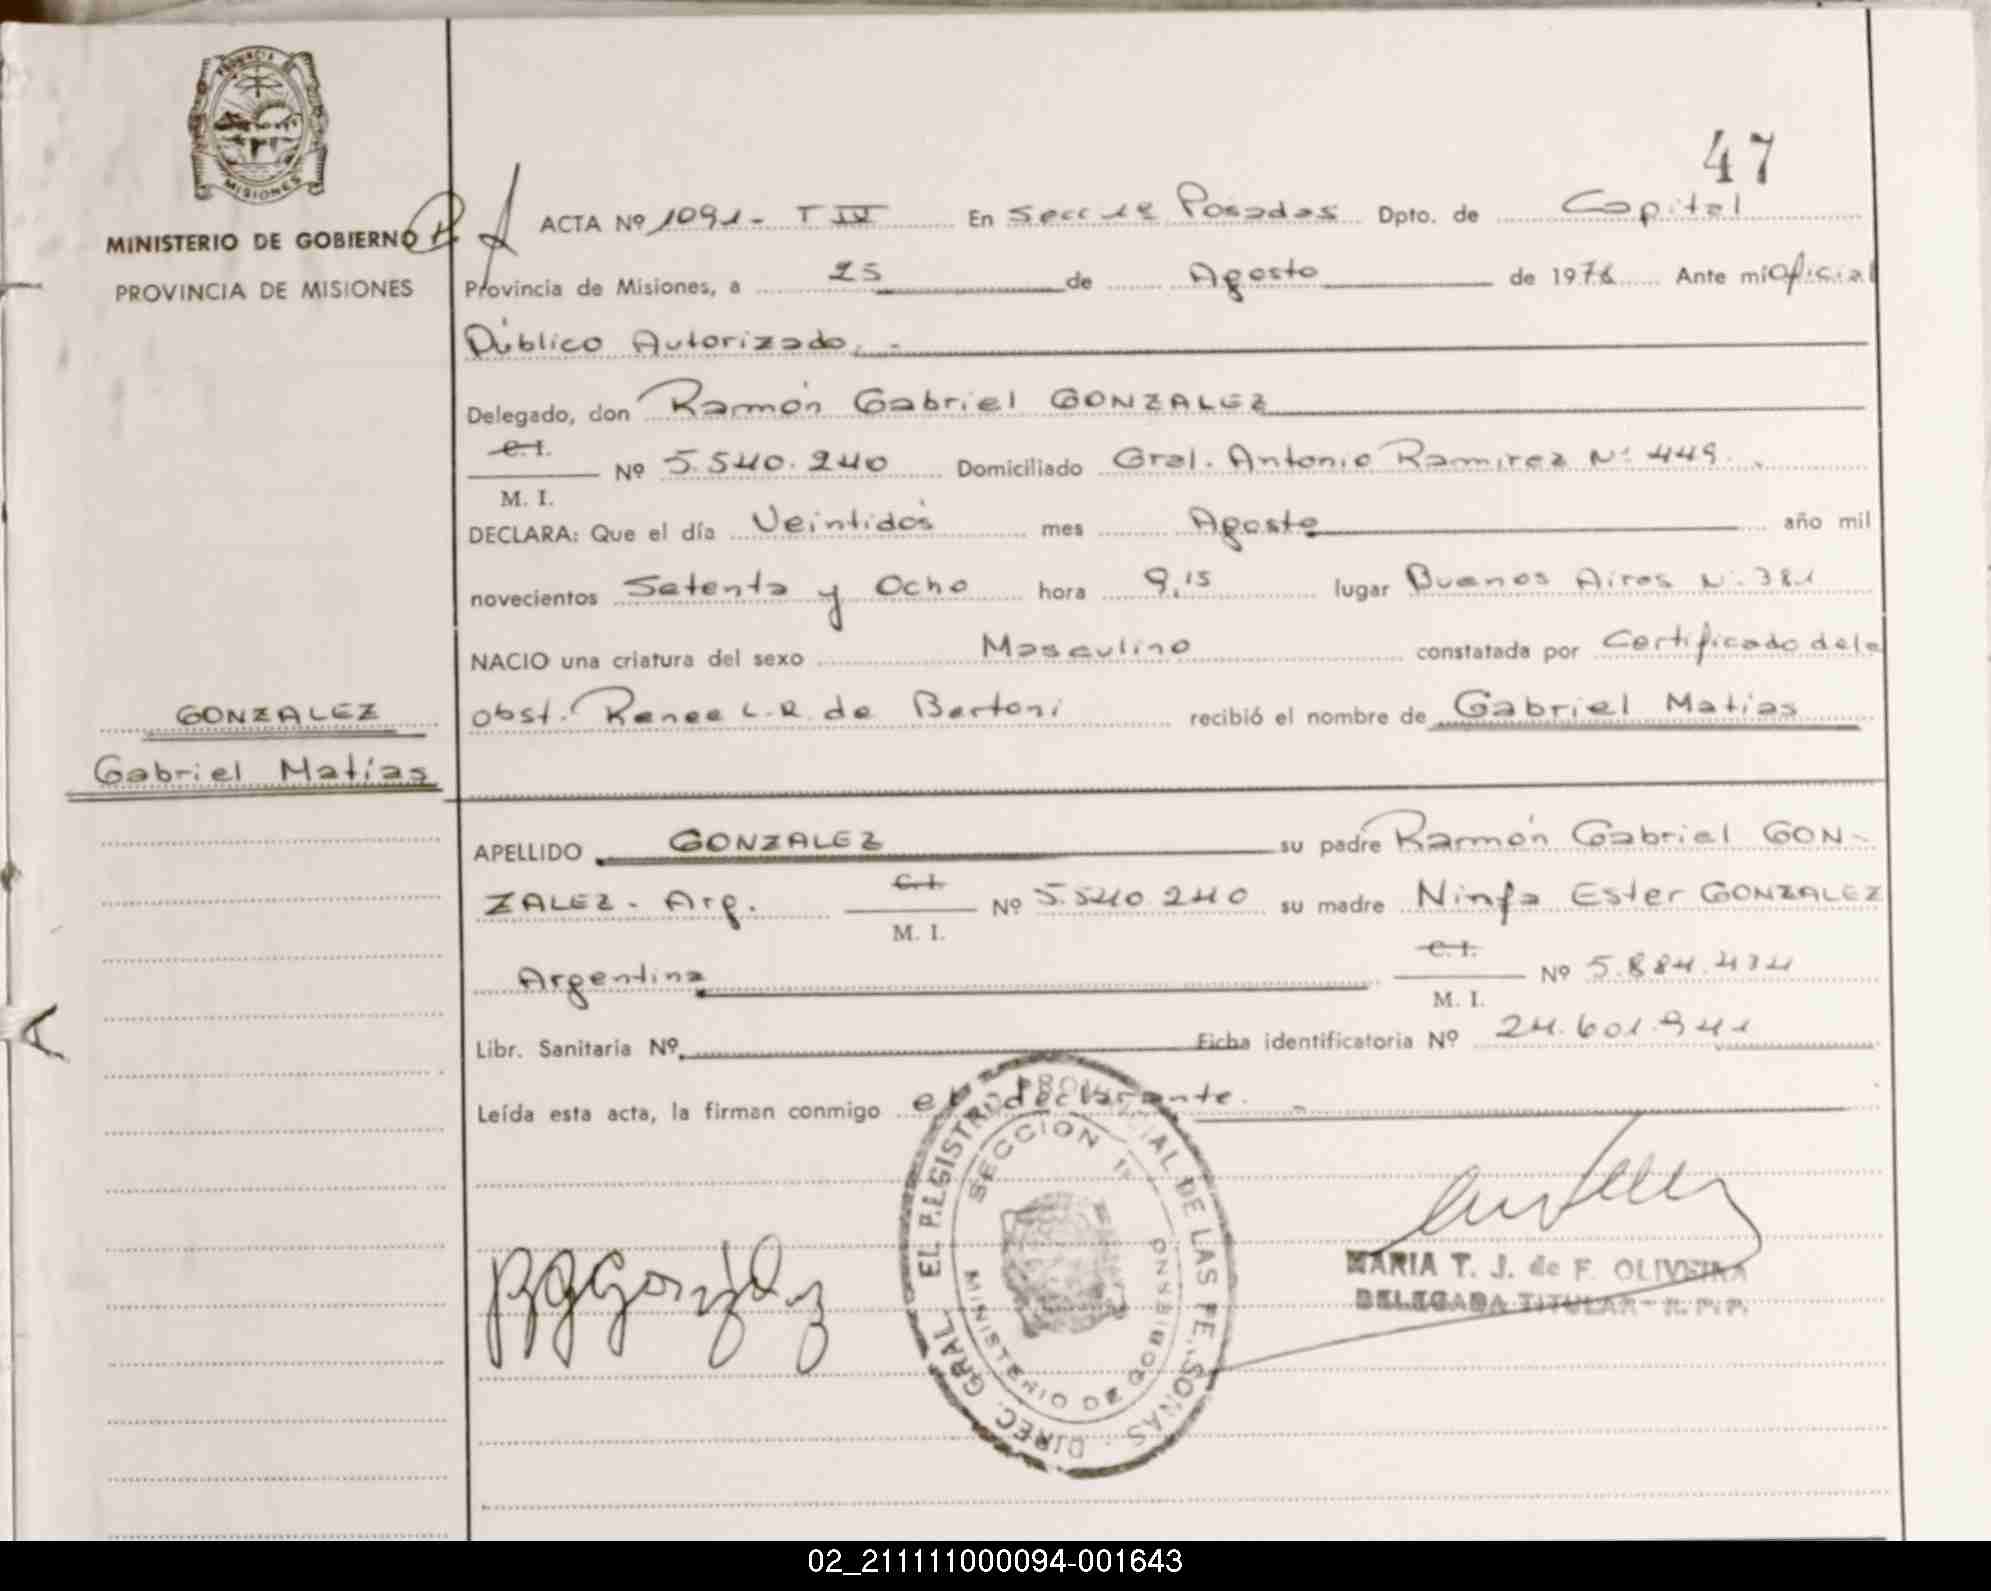 PROVINCIA DE
MISIONES
MINISTERIO DE GOBIERNO
PROVINCIA DE MISIONES
47
ACTA Nº 1091- T IV En Secc 1ª Posadas Dpto. de Capital
Provincia de Misiones, a 25 de Agosto de 1978 Ante mi Oficial
Público Autorizado. -
Delegado, don Ramón Gabriel GONZALEZ
C.I.
M. I. Nº 5.540.240 Domiciliado Gral. Antonio Ramirez Nº 449.
DECLARA: Que el día Veintidós mes Agosto año mil
novecientos Setenta y Ocho hora 9,15 lugar Buenos Aires Nº 381
NACIO una criatura del sexo Masculino constatada por Certificado de la
obst. Renee L.R. de Bertoni recibió el nombre de Gabriel Matías
GONZALEZ
Gabriel Matías
APELLIDO GONZALEZ su padre Ramón Gabriel GON-
ZALEZ - Arg. C.I. M. I. Nº 5.540.240 su madre Ninfa Ester GONZALEZ
Argentina C.I. M. I. Nº 5.884.434
Libr. Sanitaria Nº Ficha identificatoria Nº 24.601.941
Leída esta acta, la firman conmigo el declarante. -
DIREC. GRAL. DEL REGISTRO PROVINCIAL DE LAS PERSONAS
SECCION 1ª
MINISTERIO DE GOBIERNO
RGGonzález
MARIA T. J. de F. OLIVEIRA
DELEGADA TITULAR - R. P. P.
02_211111000094-001643